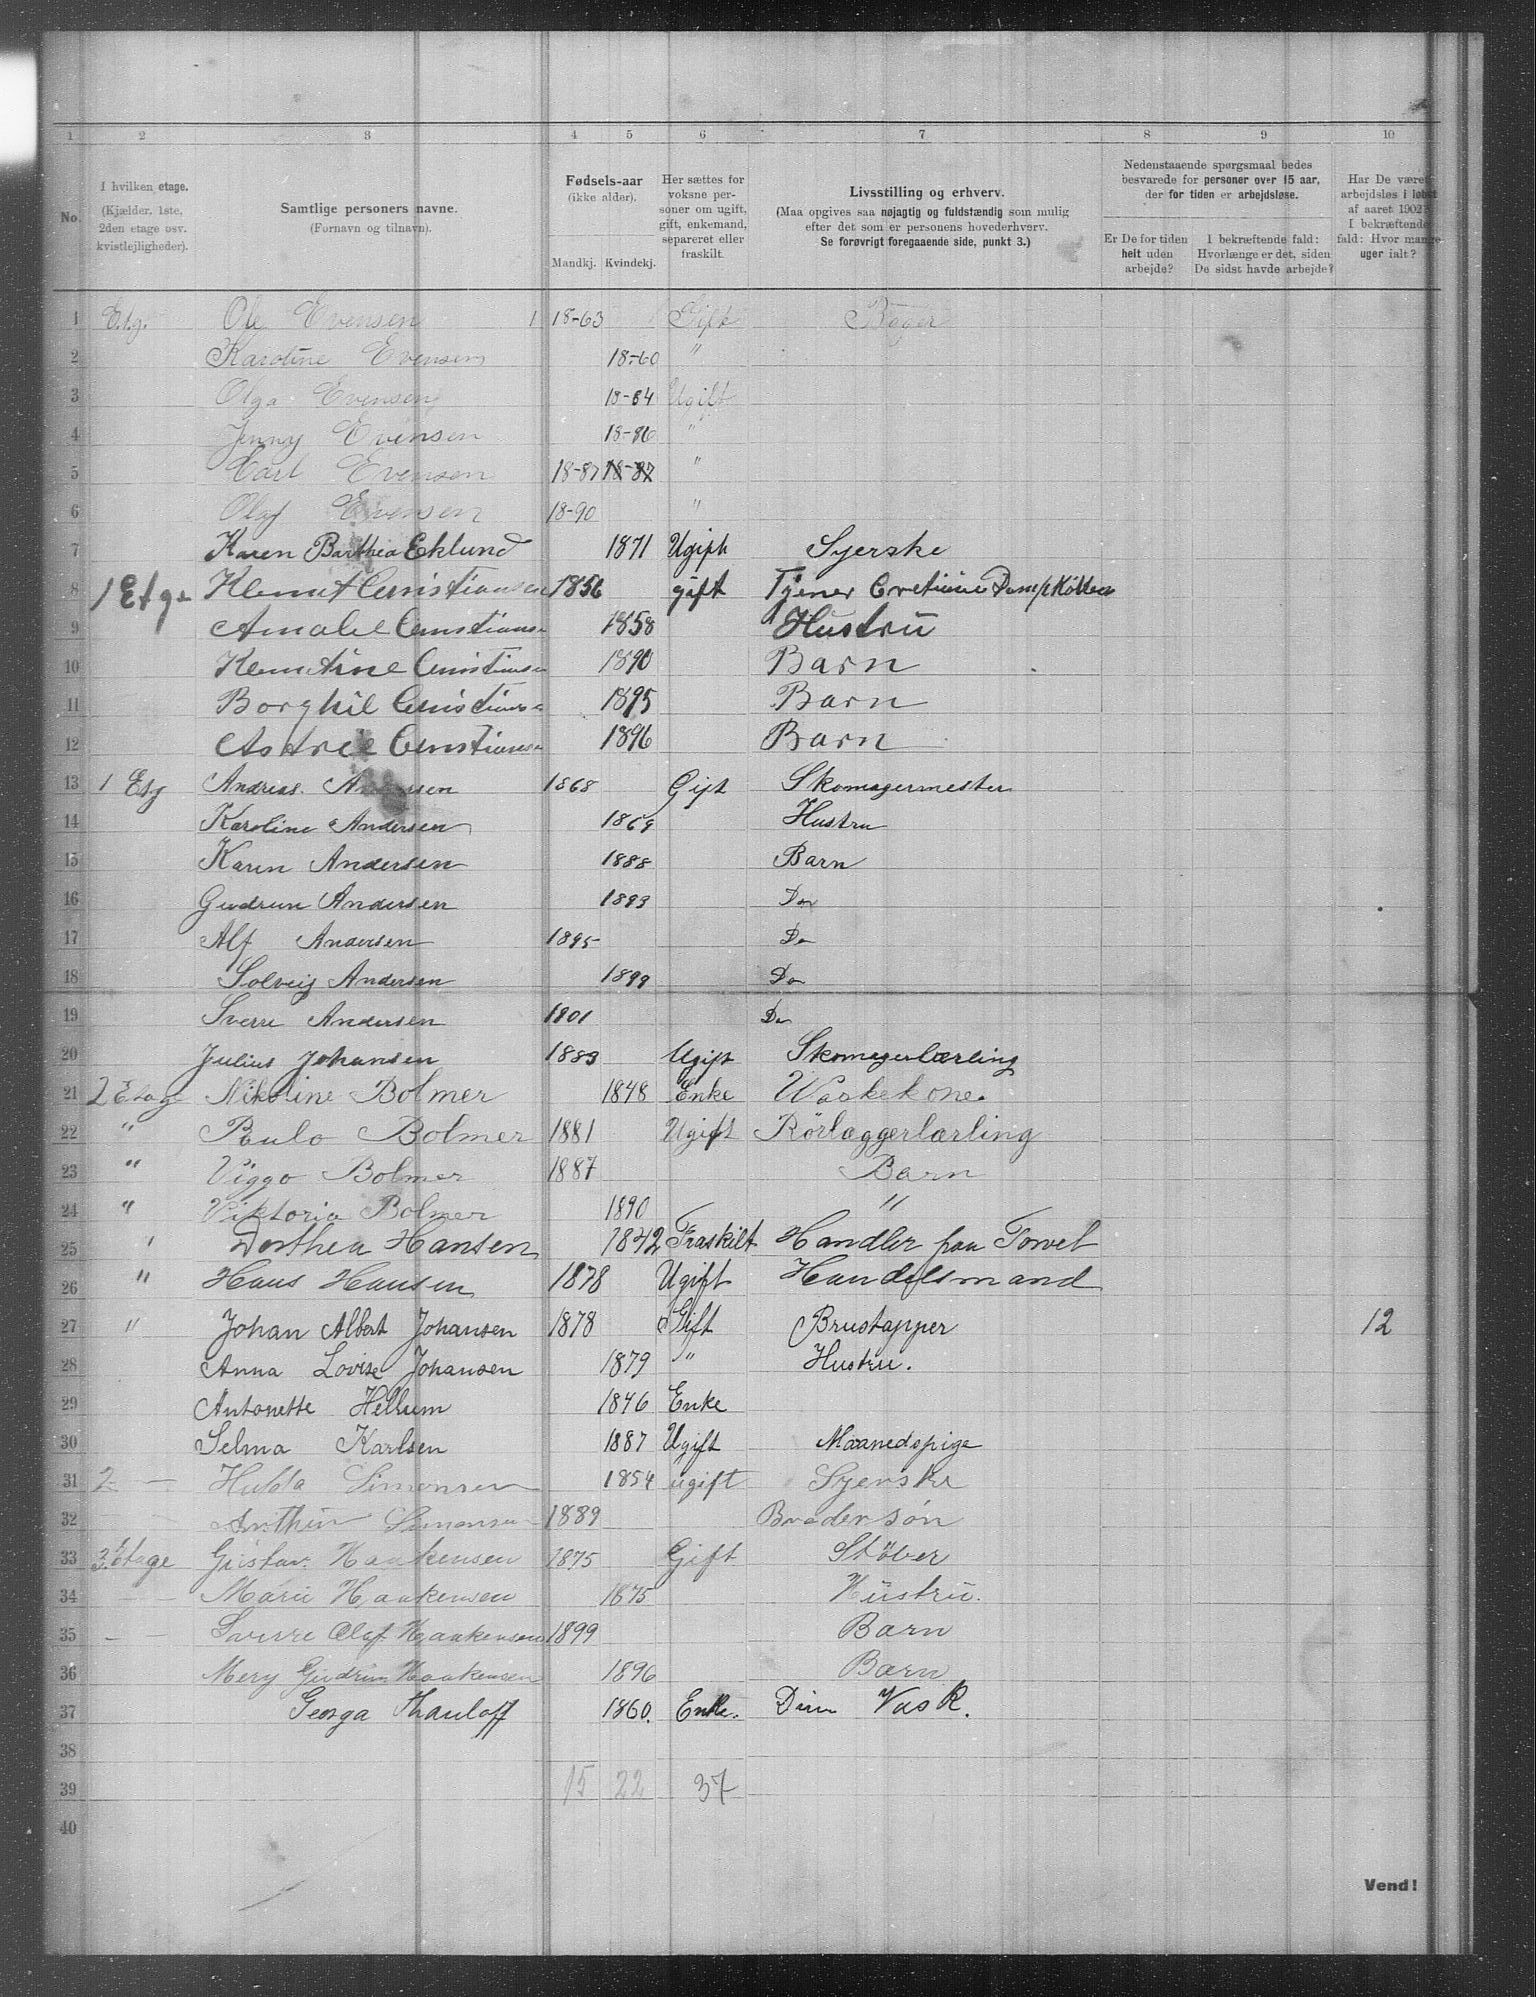 1 2 3 4 5 6 7 8 9 10
No. I hvilken etage. (Kjælder, 1ste, 2den etage osv. kvistlejligheder).
Samtlige personers navne. (Fornavn og tilnavn).
Fødsels-aar (ikke alder). Mandkj. Kvindekj.
Her sættes for voksne personer om ugift, gift, enkemand, separeret eller fraskilt.
Livsstilling og erhverv. (Maa opgives saa nøjagtig og fuldstændig som mulig efter det som er personens hovederhverv. Se forøvrigt foregaaende side, punkt 3.)
Nedenstaaende spørgsmaal bedes besvarede for personer over 15 aar, der for tiden er arbejdsløse.
Er De for tiden helt uden arbejde?
I bekræftende fald: Hvorlænge er det, siden De sidst havde arbejde?
Har De været arbejdsløs i løbet af aaret 1902? I bekræftende fald: Hvor mange uger ialt?
1 Etg. Ole Evensen 1 18-63 Gift Bager
2 Karoline Evensen 18-60 "
3 Olga Evensen 18-84 Ugift
4 Jenny Evensen 18-86 "
5 Carl Evensen 18-87 18-87 "
6 Olaf Evensen 18-90 "
7 Karen Barthea Eklund 1871 Ugift Syerske
8 1 Etge Klemet Cristiansen 1856 gift Tjener
9 Amalie Cristians 1858 Hustru
10 Klemetine Cristians 1890 Barn
11 Borghil Cristians 1895 Barn
12 Astrid Cristians 1896 Barn
13 1 Etg Andreas Andersen 1868 Gift Skomagermester
14 Karoline Andersen 1869 Hustru
15 Karen Andersen 1888 Barn
16 Gudrun Andersen 1893 Do
17 Alf Andersen 1895 Do
18 Solveig Andersen 1899 Do
19 Sverre Andersen 1901 Do
20 Julius Johansen 1883 Ugift Skomagerlærling
21 2 Etage Nikoline Bolmer 1848 Enke Vaskekone.
22 " Paulo Bolmer 1881 Ugift Rörlæggerlærling
23 " Viggo Bolmer 1887 Barn
24 " Viktoria Bolmer 1890 "
25 " Dorthea Hansen 1842 Fraskilt Handler paa Torvet
26 " Hans Hansen 1878 Ugift Handelsmand
27 " Johan Albert Johansen 1878 Gift Brustapper 12
28 Anna Lovise Johansen 1879 " Hustru.
29 Antonette Hellum 1846 Enke
30 Selma Karlsen 1887 Ugift Maanedspige
31 2 — Hulda Simonsen 1854 ugift Syerske
32 Arthur Simonsen 1889 Brodersøn
33 3 Etage Gustav Haakensen 1875 Gift Støber
34 — Marie Haakensen 1875 Hustru.
35 — Sverre Olaf Haakensen 1899 Barn
36 Mery Gudrun Haakensen 1896 Barn
37 Georga Thauloff 1860. Enke. Vask.
38
39 15 22 37
40
Vend!